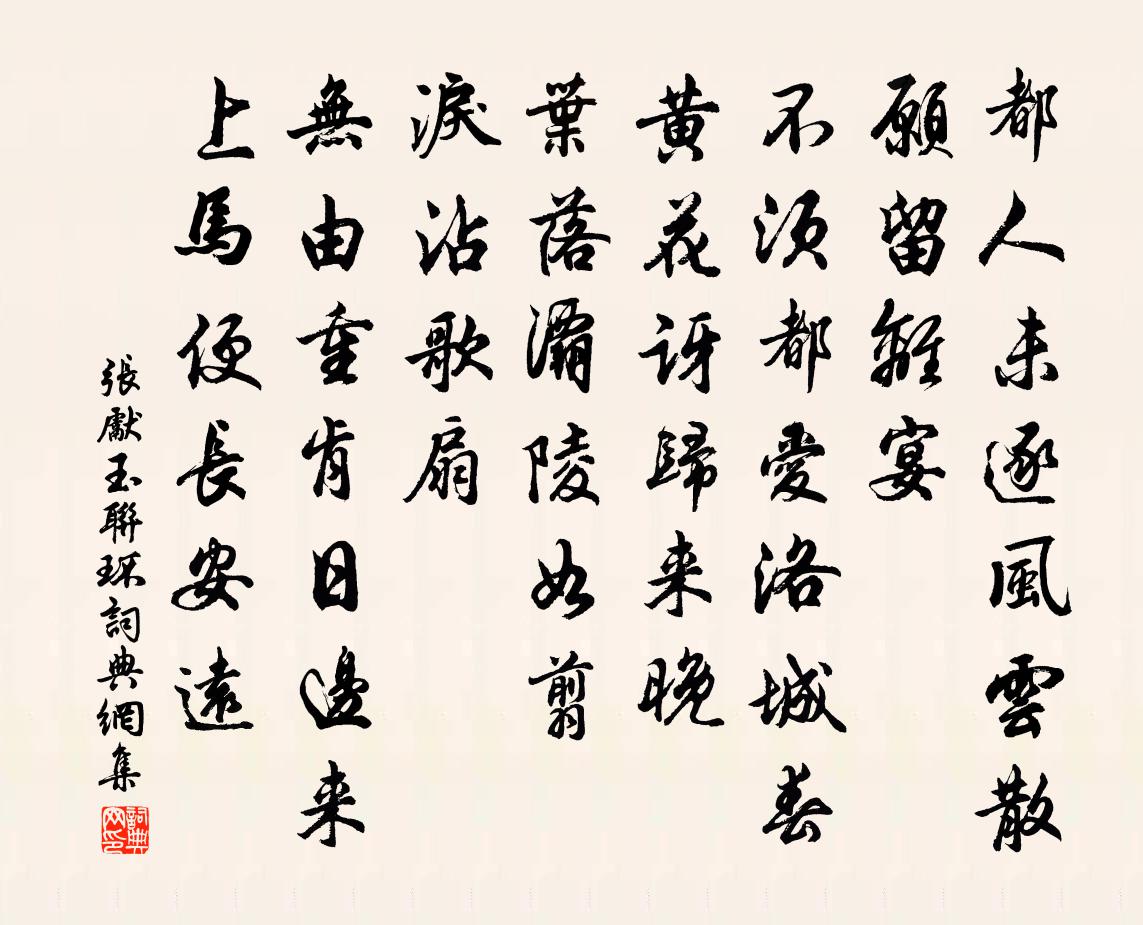 都人未逐風雲散
願留離宴
不須都愛洛城春
黄花訝歸来晚
葉落灞陵如翦
淚沾歌扇
無由重肯日邊来
上馬便長安遠
張獻玉聯珠詞典網集
詞典網印